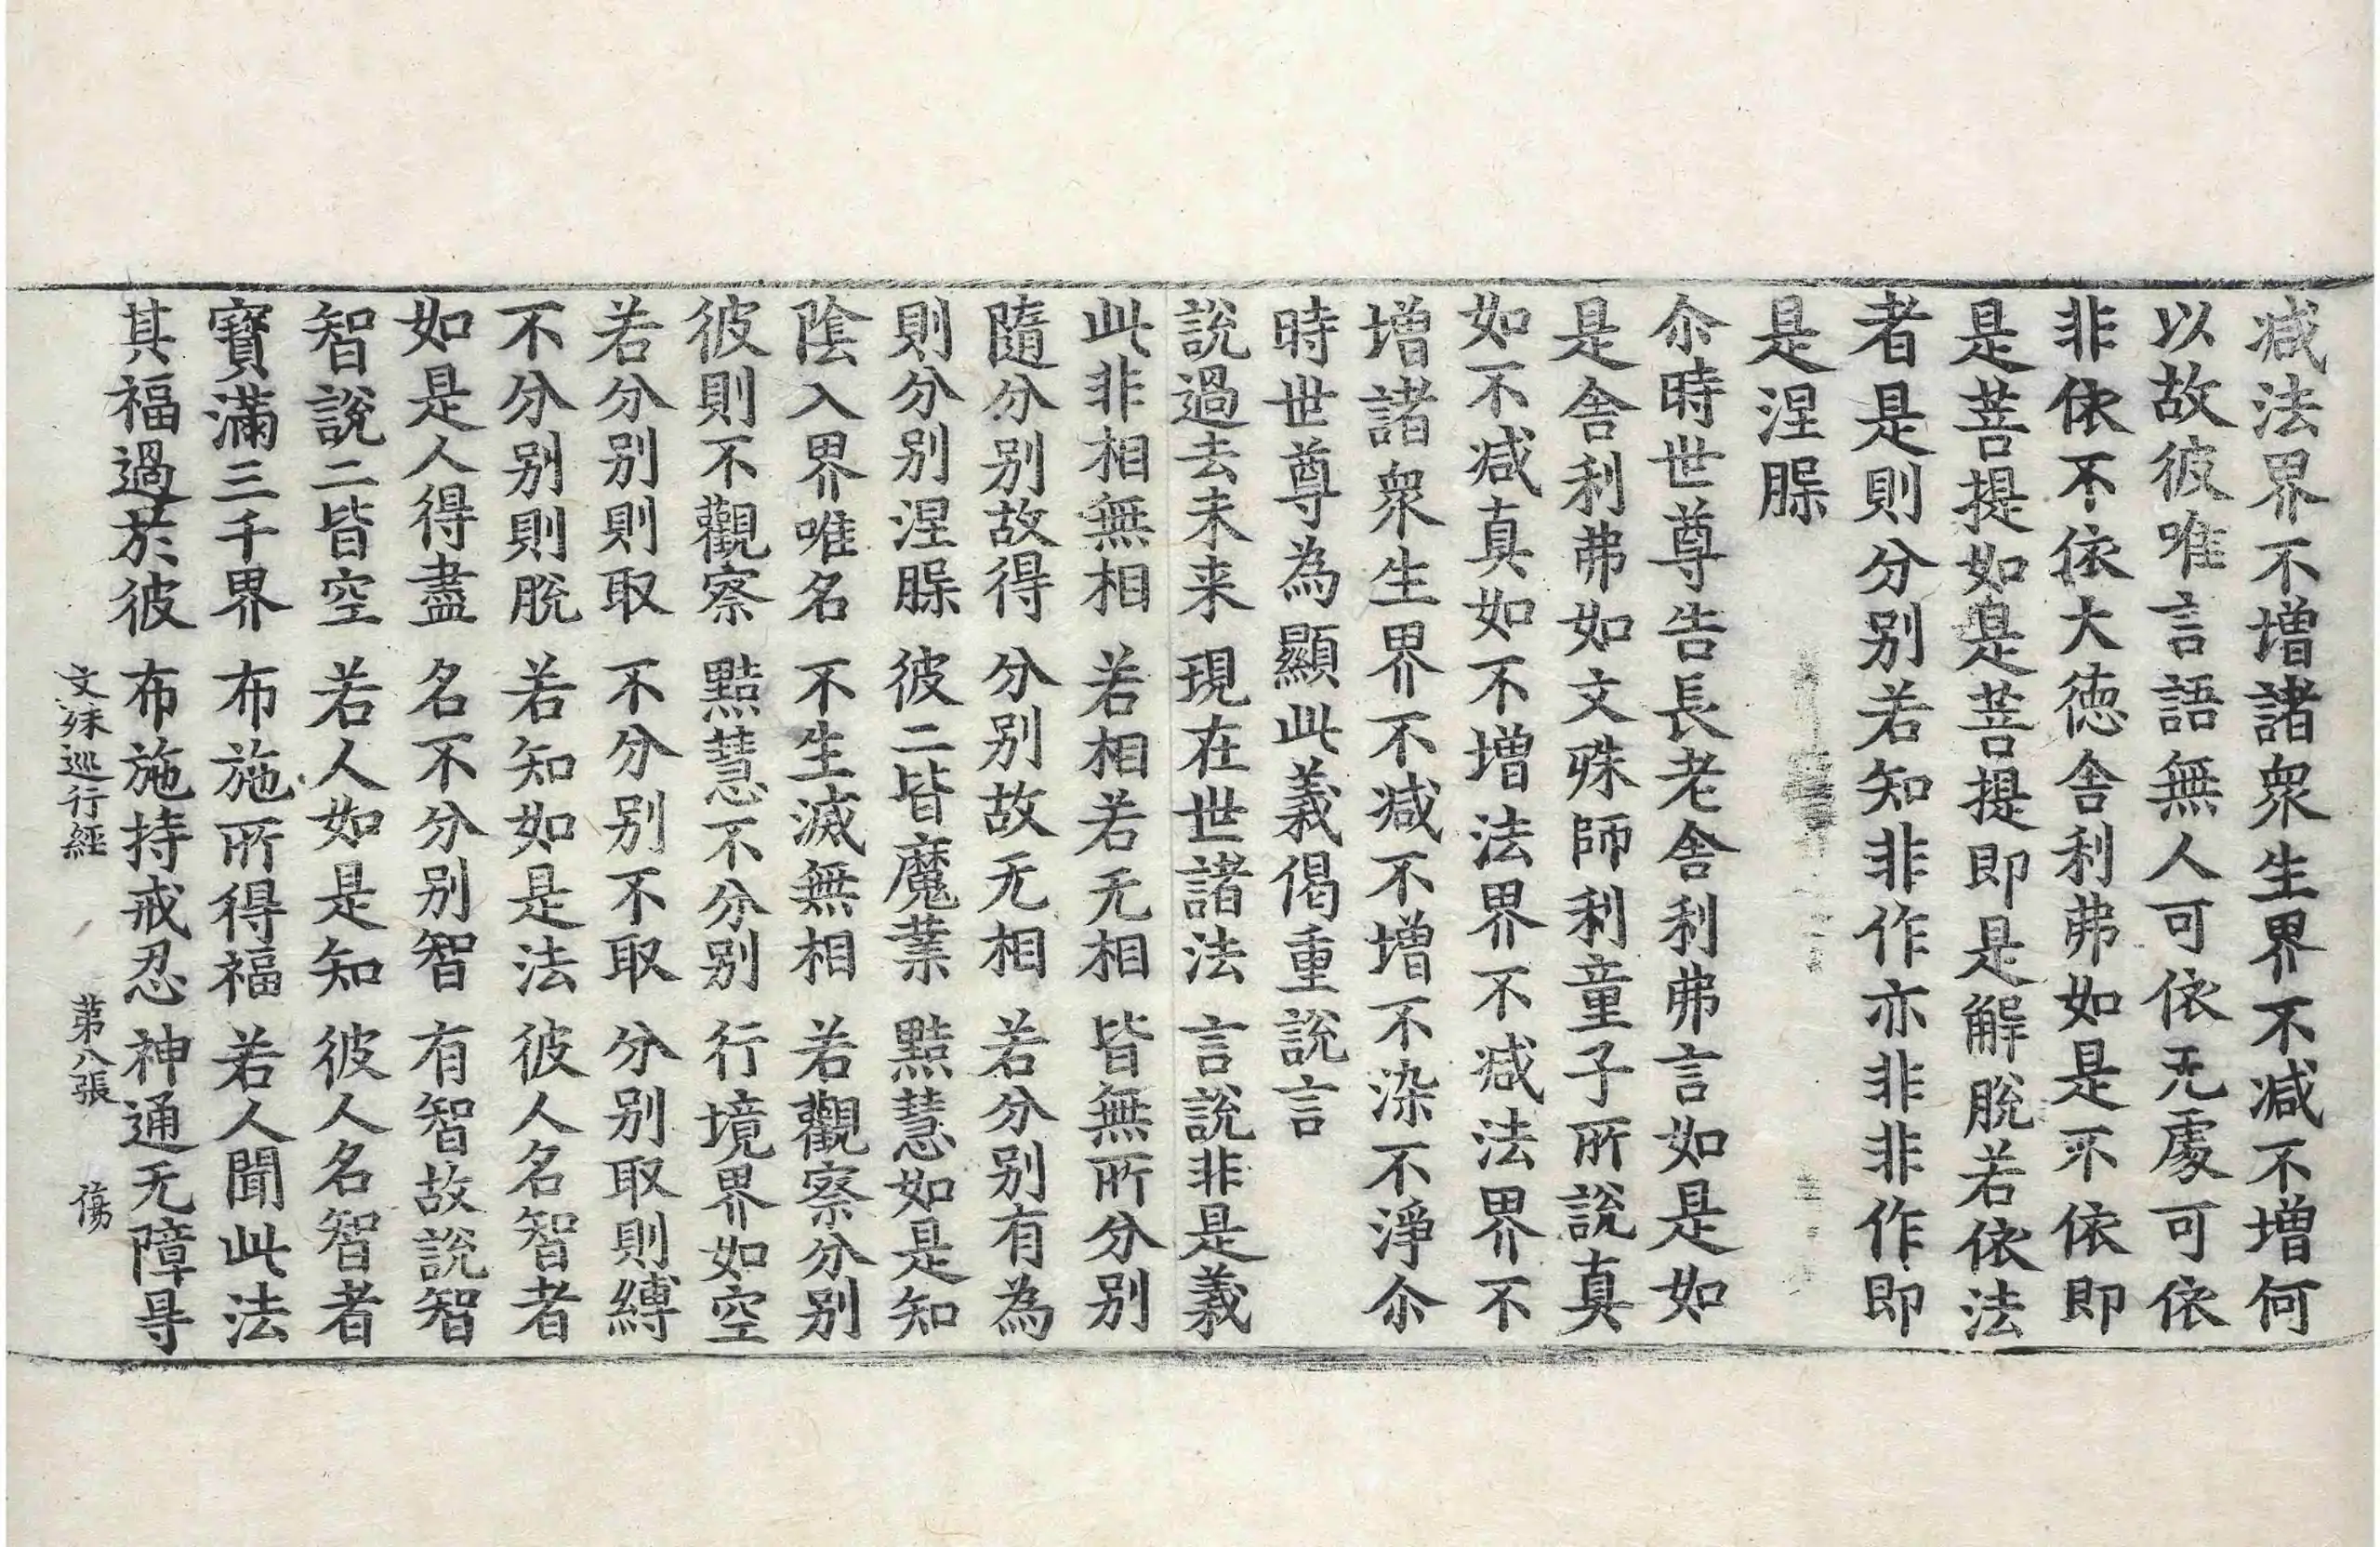 减法界不增諸衆生界不减不增何
以故彼唯言語無人可依无處可依
非依不依大徳舍利弗如是不依即
是菩提如是菩提即是解脫若依法
者是則分别若知非作亦非非作即
是涅槃
尒時世尊告長老舍利弗言如是如
是舍利弗如文殊師利童子所說真
如不减真如不增法界不减法界不
增諸衆生界不减不增不染不淨尒
時世尊為顯此義偈重說言
說過去未来 現在世諸法 言說非是義
此非相無相 若相若无相 皆無所分别
隨分别故得 分别故无相 若分别有為
則分别涅槃 彼二皆魔業 黠慧如是知
陰入界唯名 不生滅無相 若觀察分别
彼則不觀察 黠慧不分别 行境界如空
若分别則取 不分别不取 分别取則縛
不分别則脫 若知如是法 彼人名智者
如是人得盡 名不分别智 有智故說智
智說二皆空 若人如是知 彼人名智者
寶滿三千界 布施所得福 若人聞此法
其福過於彼 布施持戒忍 神通无障㝵
文殊巡行經 苐八張 傷